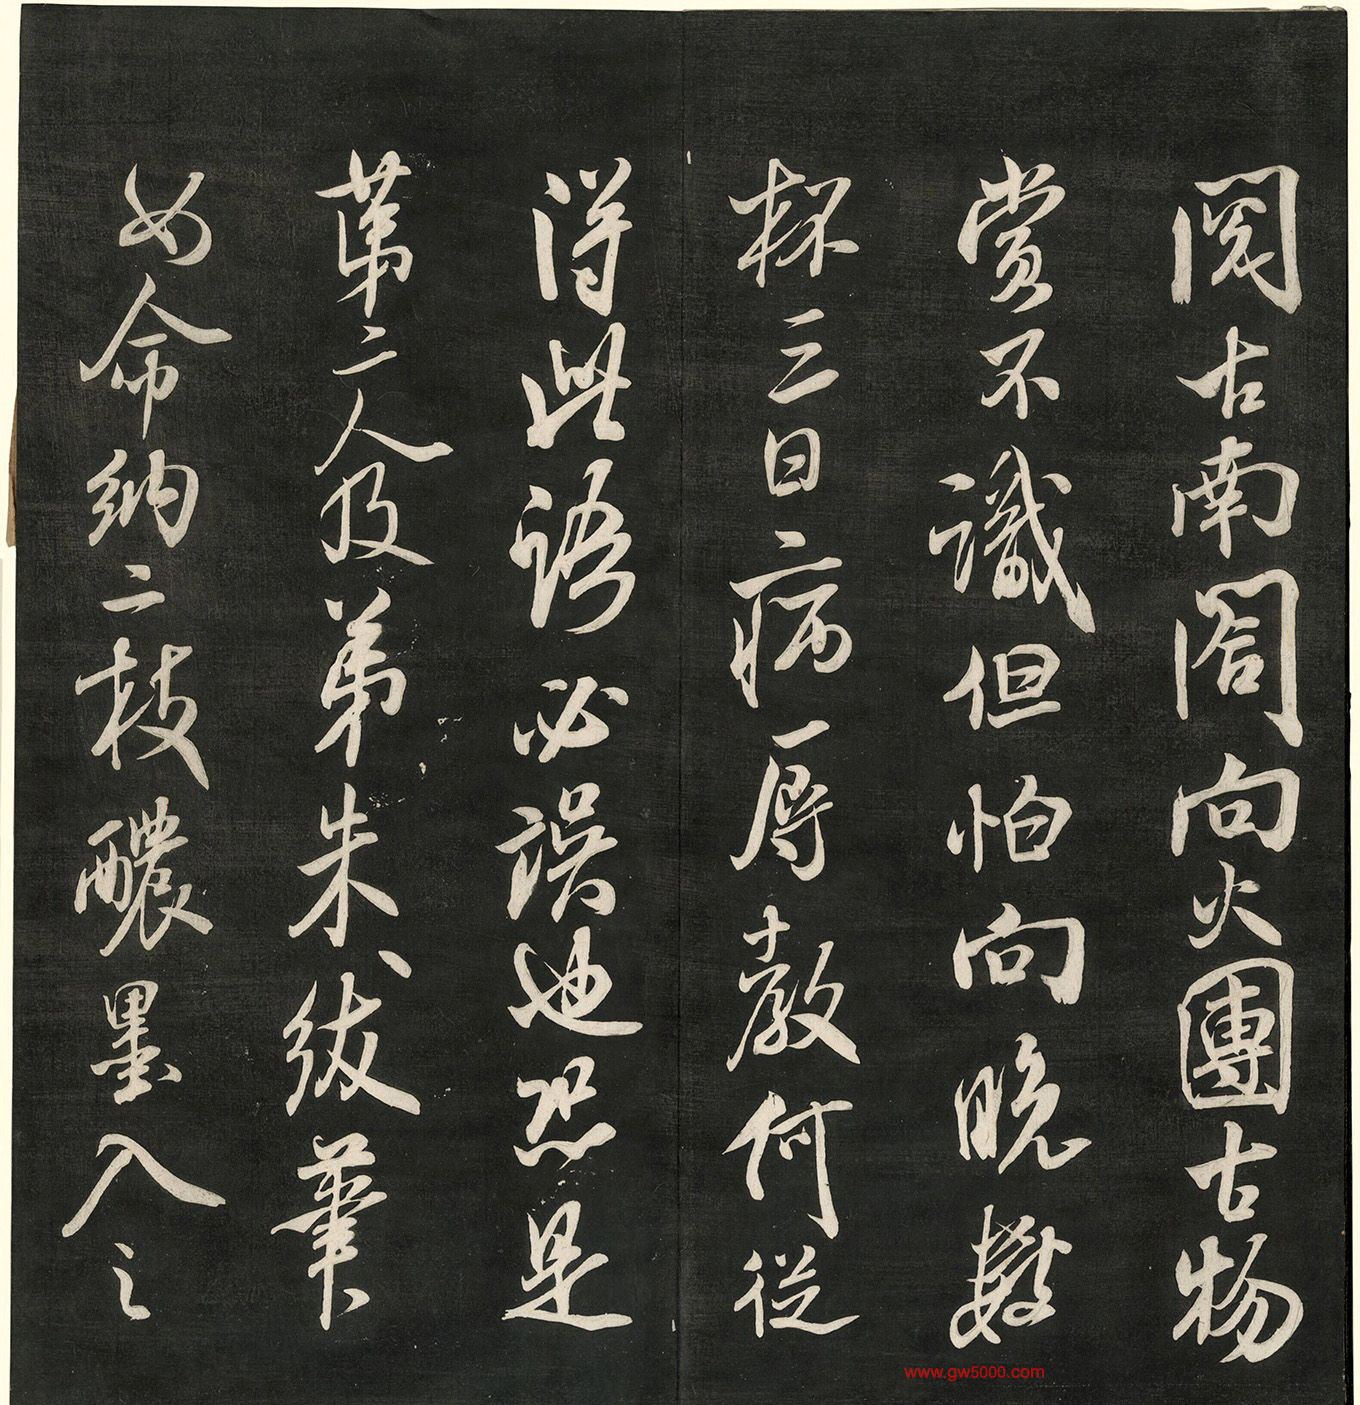 閱古南閣向火團古物
賞不識但怕向晚數
杯三日病辱教何從
得此語必誤也恐是
第二人及弟朱紱筆
如命納二枝醲墨入之
www.gw5000.com